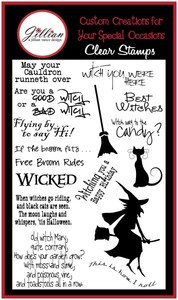 Gillian
Custom Creations for
Your Special Occasions
Clear Stamps
May your
Cauldron
runneth over
Witch you
were
here
Are you a
GOOD Witch
or a
BAD Witch
Best
Witches
Flying by
to say Hi!
Which way to the
Candy?
If the broom fits...
Free Broom Rides
WICKED
Witching you a
Happy Birthday
When witches go riding,
and black cats are seen,
The moon laughs and
whispers, 'tis Halloween.
Old witch Mary,
quite contrary,
How does your garden grow?
With moss and slime,
and poisonous vine,
and toadstools all in a row
This is how I roll